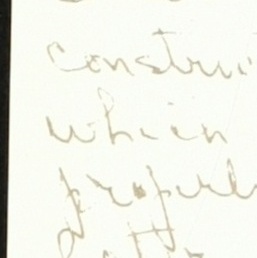 constru
which
properl